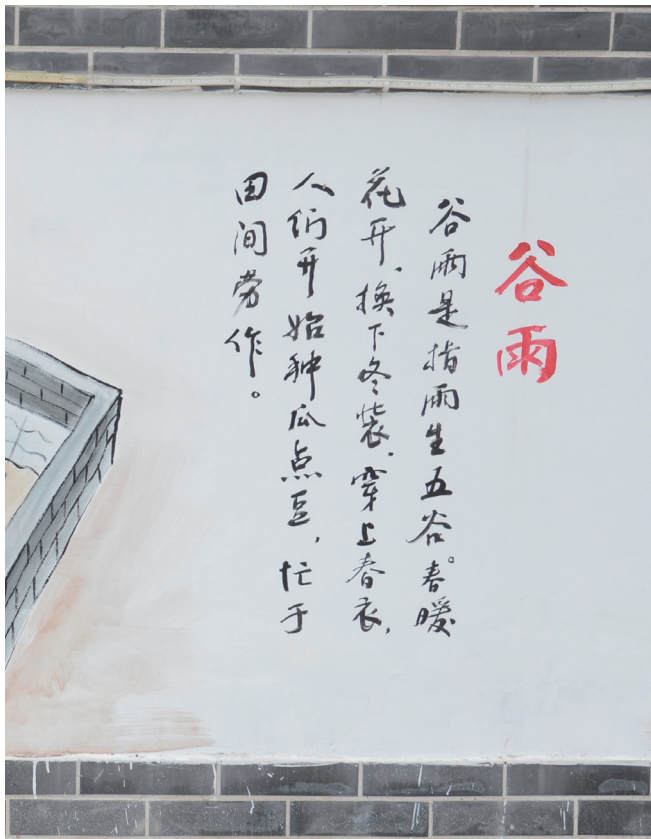 谷雨
谷雨是指雨生五谷。春暖
花开、换下冬装、穿上春衣,
人们开始种瓜点豆,忙于
田间劳作。